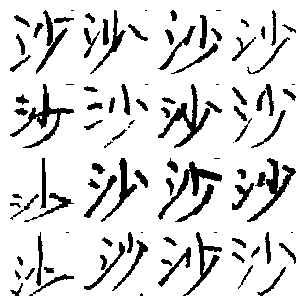 沙沙沙沙
沙沙沙沙
沙沙沙沙
沙沙沙沙